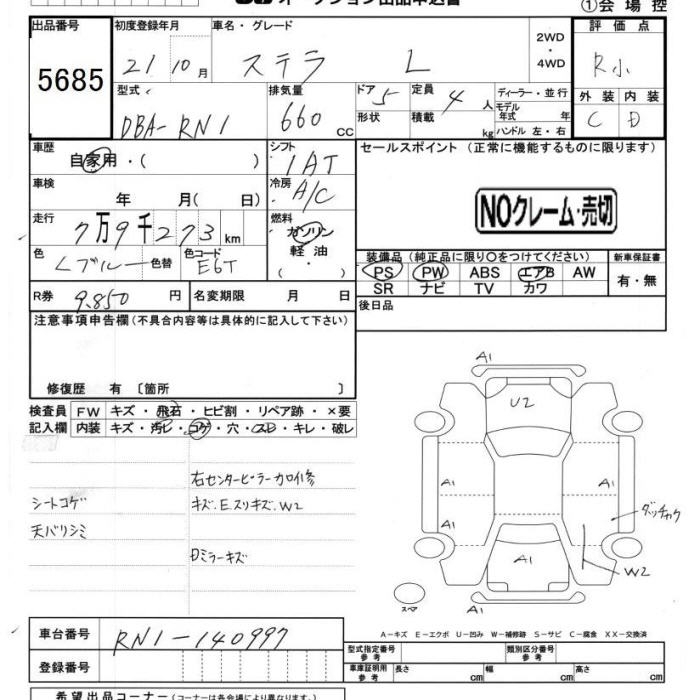 ①会場控
出品番号
5685
初度登録年月
21 10月
車名・グレード
ステラ L
2WD
・
4WD
評価点
R小
型式
DBA-RN1
排気量
660 CC
ドア
5
定員
4 人
形状
積載
kg
ディーラー・並行
モデル
年式 年
ハンドル 左・右
外装
内装
C
D
車歴
自家用・( )
シフト
IAT
セールスポイント (正常に機能するものに限ります)
NOクレーム・売切
車検
年 月( 日)
冷房
A/C
走行
7万9千273km
燃料
ガソリン
軽油
・( )
色
Lブルー
色替
色コード
E6T
装備品(純正品に限り○をつけてください)
新車保証書
PS PW ABS エアB AW
SR ナビ TV カワ
有・無
R券
9,850 円
名変期限 月 日
後日品
注意事項申告欄(不具合内容等は具体的に記入して下さい)
修復歴 有 〔箇所 〕
検査員
記入欄
FW キズ・飛石・ヒビ割・リペア跡・×要
内装 キズ・汚レ・コゲ・穴・スレ・キレ・破レ
右センターピラーカロイ修
シートコゲ
キズ.E.スリキズ.W2
天バリシミ
Dミラーキズ
A1
U2
A1
A1
A1
A1
ダッチャク
W2
スペア
A1
A-キズ E-エクボ U-凹み W-補修跡 S-サビ C-腐食 XX-交換済
車台番号
RN1-140997
登録番号
型式指定番号
参考
類別区分番号
参考
車庫証明用
参考
長さ cm
幅 cm
高さ cm
希望出品コーナー(コーナーは各会場により異なります。)